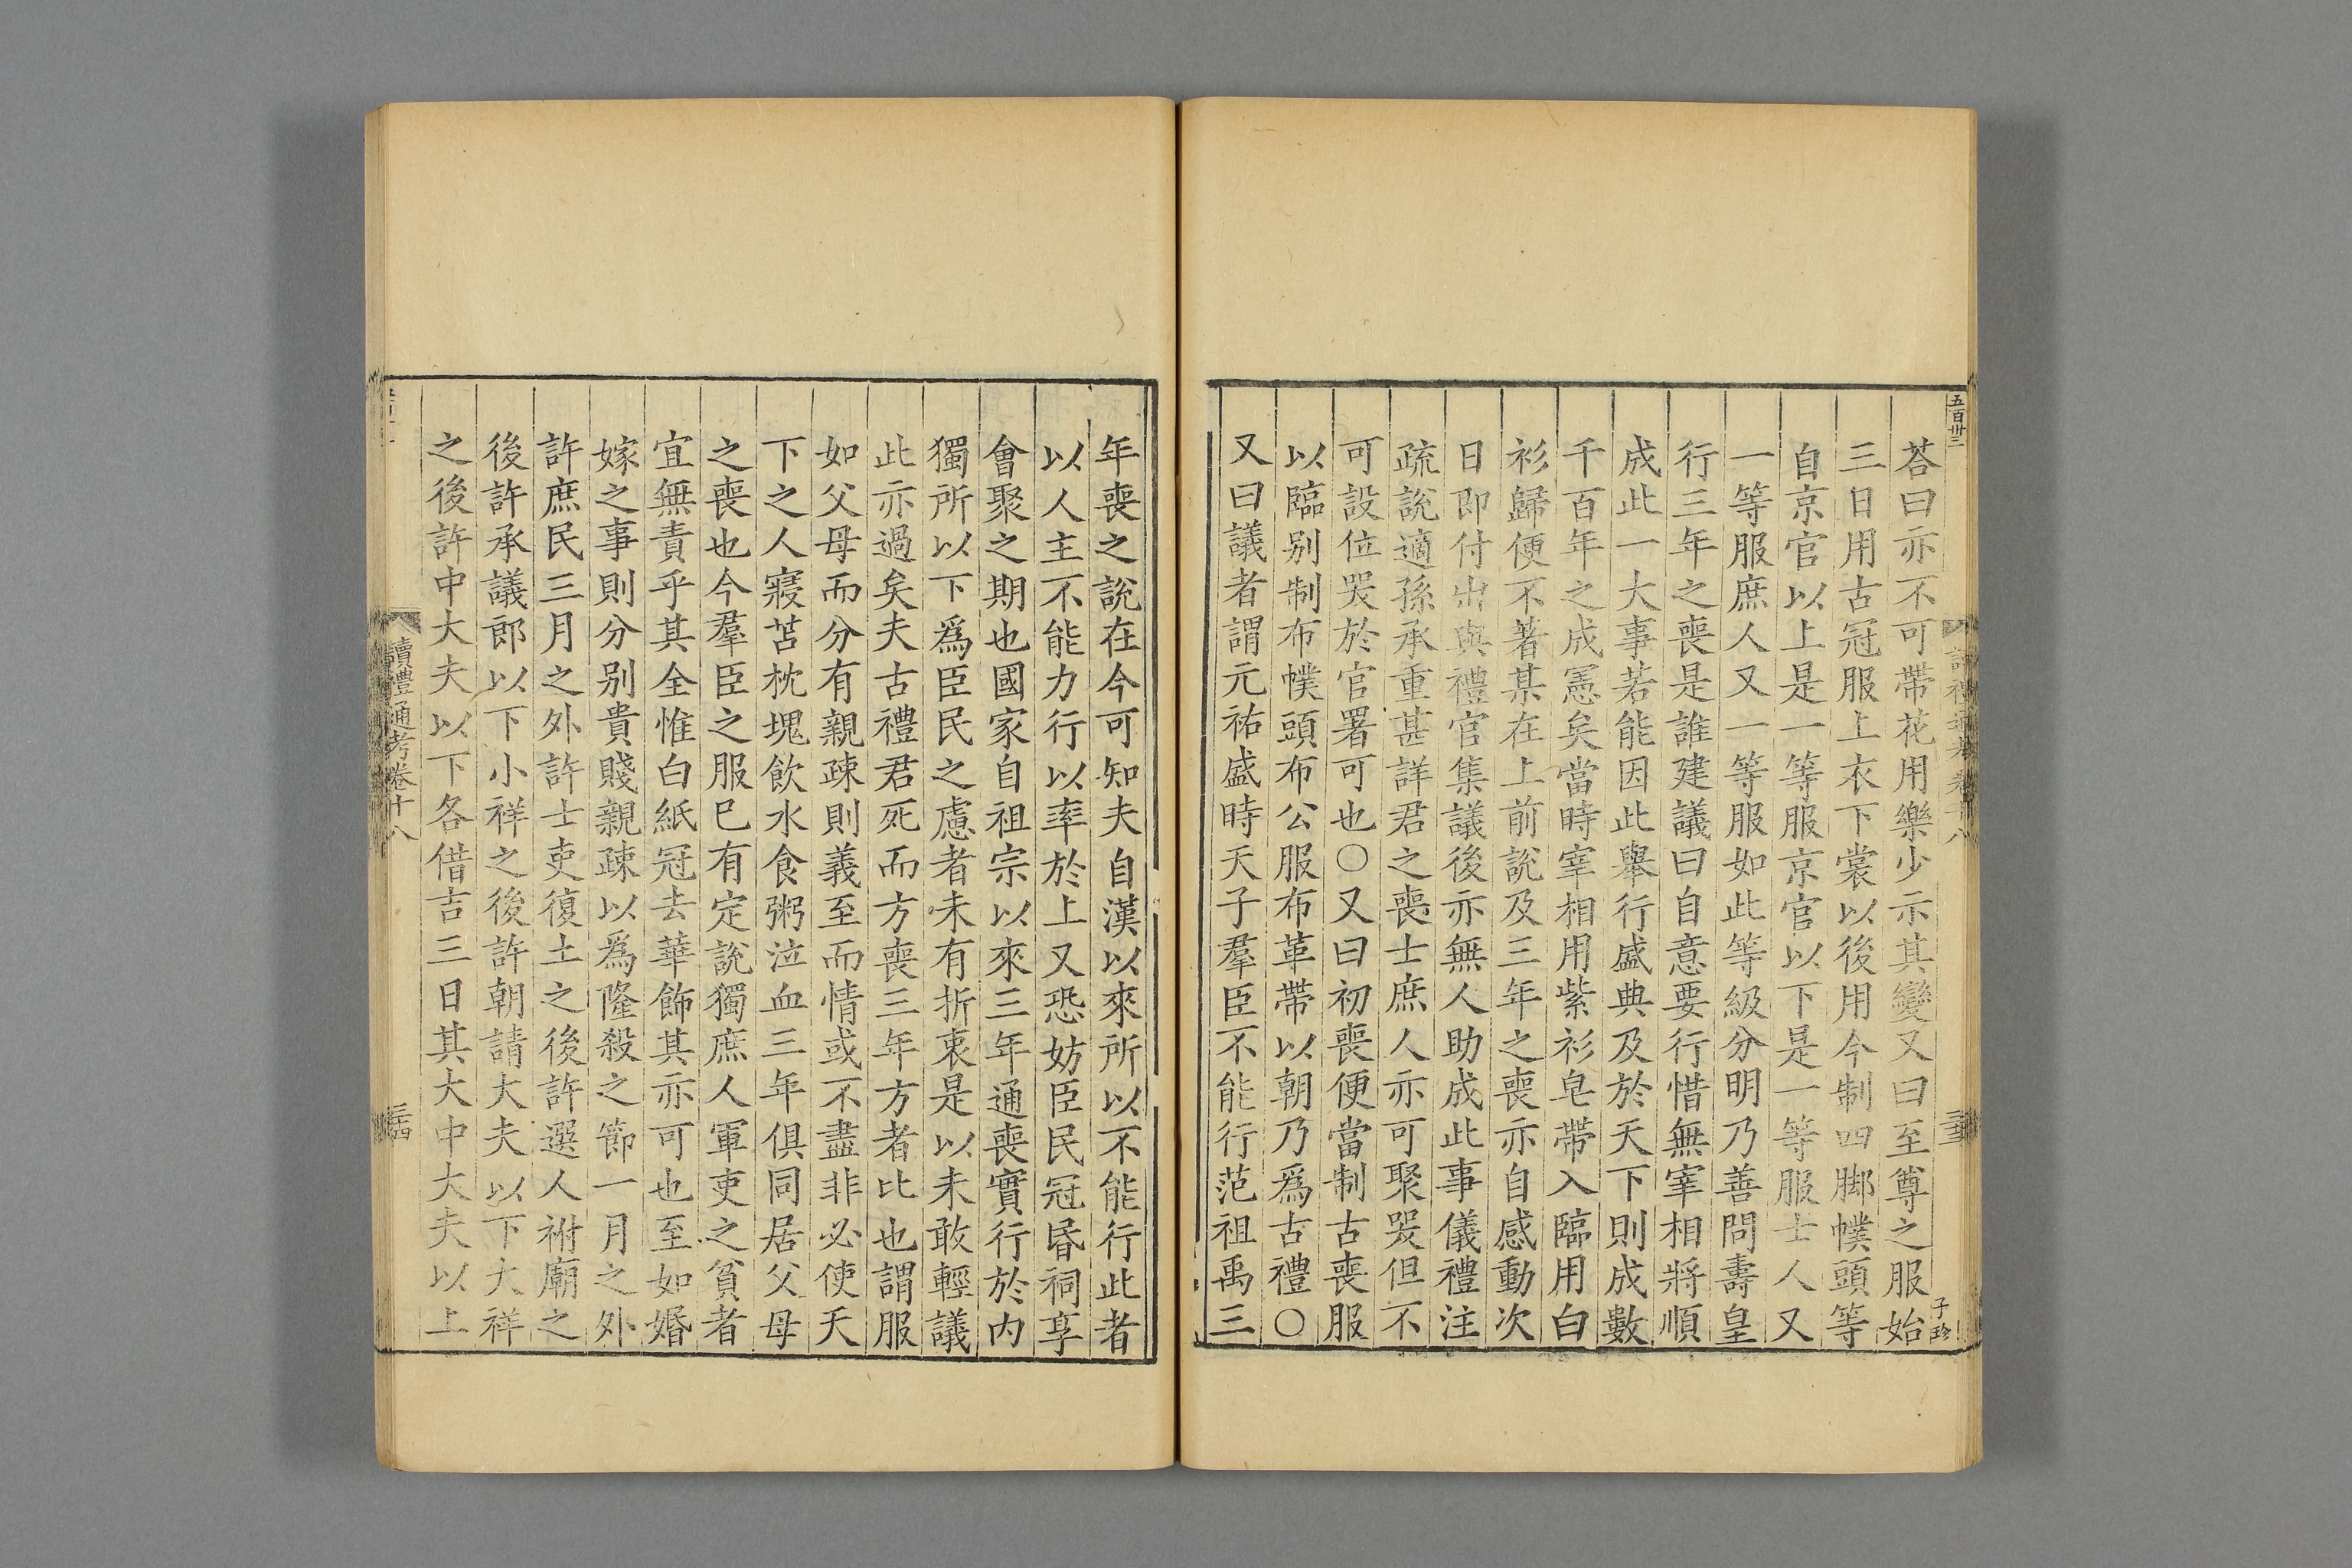 五百卅三
讀禮通考卷十八
三十三
子珍
荅曰亦不可帶花用樂少示其變又曰至尊之服始
三日用古冠服上衣下裳以後用今制四脚幞頭等
自京官以上是一等服京官以下是一等服士人又
一等服庶人又一等服如此等級分明乃善問壽皇
行三年之喪是誰建議曰自意要行惜無宰相將順
成此一大事若能因此舉行盛典及於天下則成數
千百年之成憲矣當時宰相用紫衫皂帶入臨用白
衫歸便不著某在上前說及三年之喪亦自感動次
日即付出與禮官集議後亦無人助成此事儀禮注
疏說適孫承重甚詳君之喪士庶人亦可聚哭但不
可設位哭於官署可也〇又曰初喪便當制古喪服
以臨别制布幞頭布公服布革帶以朝乃爲古禮〇
又曰議者謂元祐盛時天子羣臣不能行范祖禹三
年喪之說在今可知夫自漢以來所以不能行此者
以人主不能力行以率於上又恐妨臣民冠昏祠享
會聚之期也國家自祖宗以來三年通喪實行於内
獨所以下爲臣民之慮者未有折衷是以未敢輕議
此亦過矣夫古禮君死而方喪三年方者比也謂服
如父母而分有親疎則義至而情或不盡非必使天
下之人寢苫枕塊飲水食粥泣血三年俱同居父母
之喪也今羣臣之服已有定說獨庶人軍吏之貧者
宜無責乎其全惟白紙冠去華飾其亦可也至如婚
嫁之事則分别貴賤親疎以爲隆殺之節一月之外
許庶民三月之外許士吏復土之後許選人祔廟之
後許承議郎以下小祥之後許朝請大夫以下大祥
之後許中大夫以下各借吉三日其大中大夫以上
讀禮通考卷十八
三十四